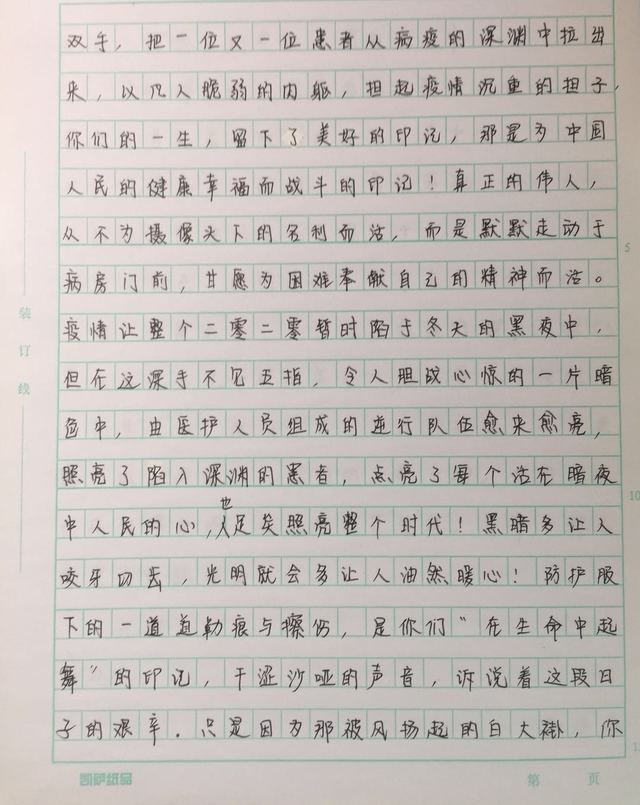 双手，把一位又一位患者从病疫的深渊中拉出
来，以凡人脆弱的肉躯，担起疫情沉重的担子，
你们的一生，留下了美好的印记，那是为中国
人民的健康幸福而战斗的印记！真正的伟人，
从不为摄像头下的名利而活，而是默默走动于
病房门前，甘愿为困难奉献自己的精神而活。
疫情让整个二零二零暂时陷于冬天的黑夜中，
但在这深手不见五指，令人胆战心惊的一片暗
色中，由医护人员组成的逆行队伍愈来愈亮，
照亮了陷入深渊的患者，点亮了每个活在暗夜
中人民的心，也足矣照亮整个时代！黑暗多让人
咬牙切齿，光明就会多让人油然暖心！防护服
下的一道道勒痕与擦伤，是你们“在生命中起
舞”的印记，干涩沙哑的声音，诉说着这段日
子的艰辛．只是因为那被风扬起的白大褂，你
装订线
5
10
凯萨纸品
第 页